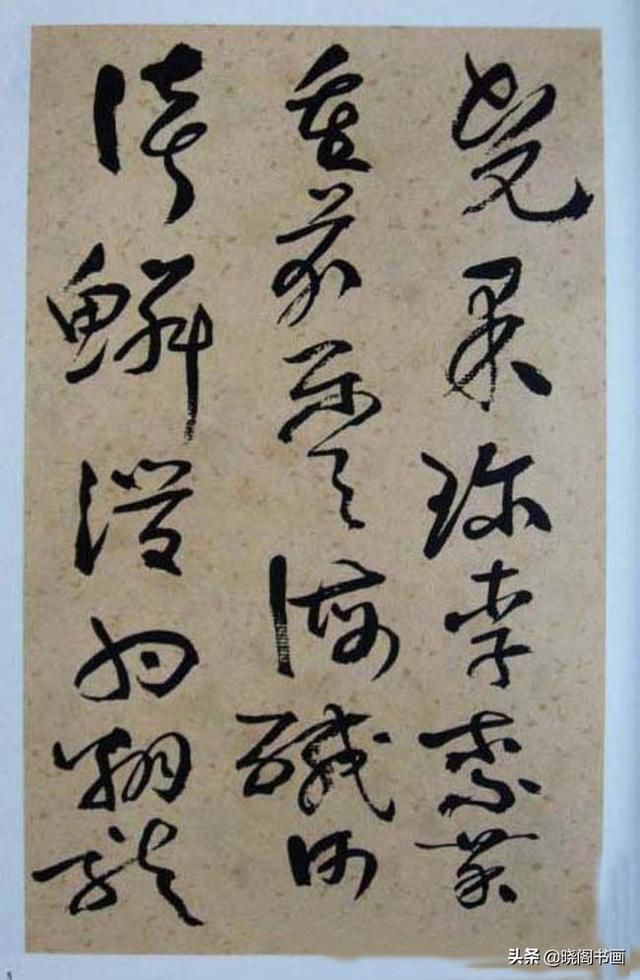 光果珍李柰菜
重芥薑海鹹河
淡鱗潛羽翔龍
头条 @晓阁书画